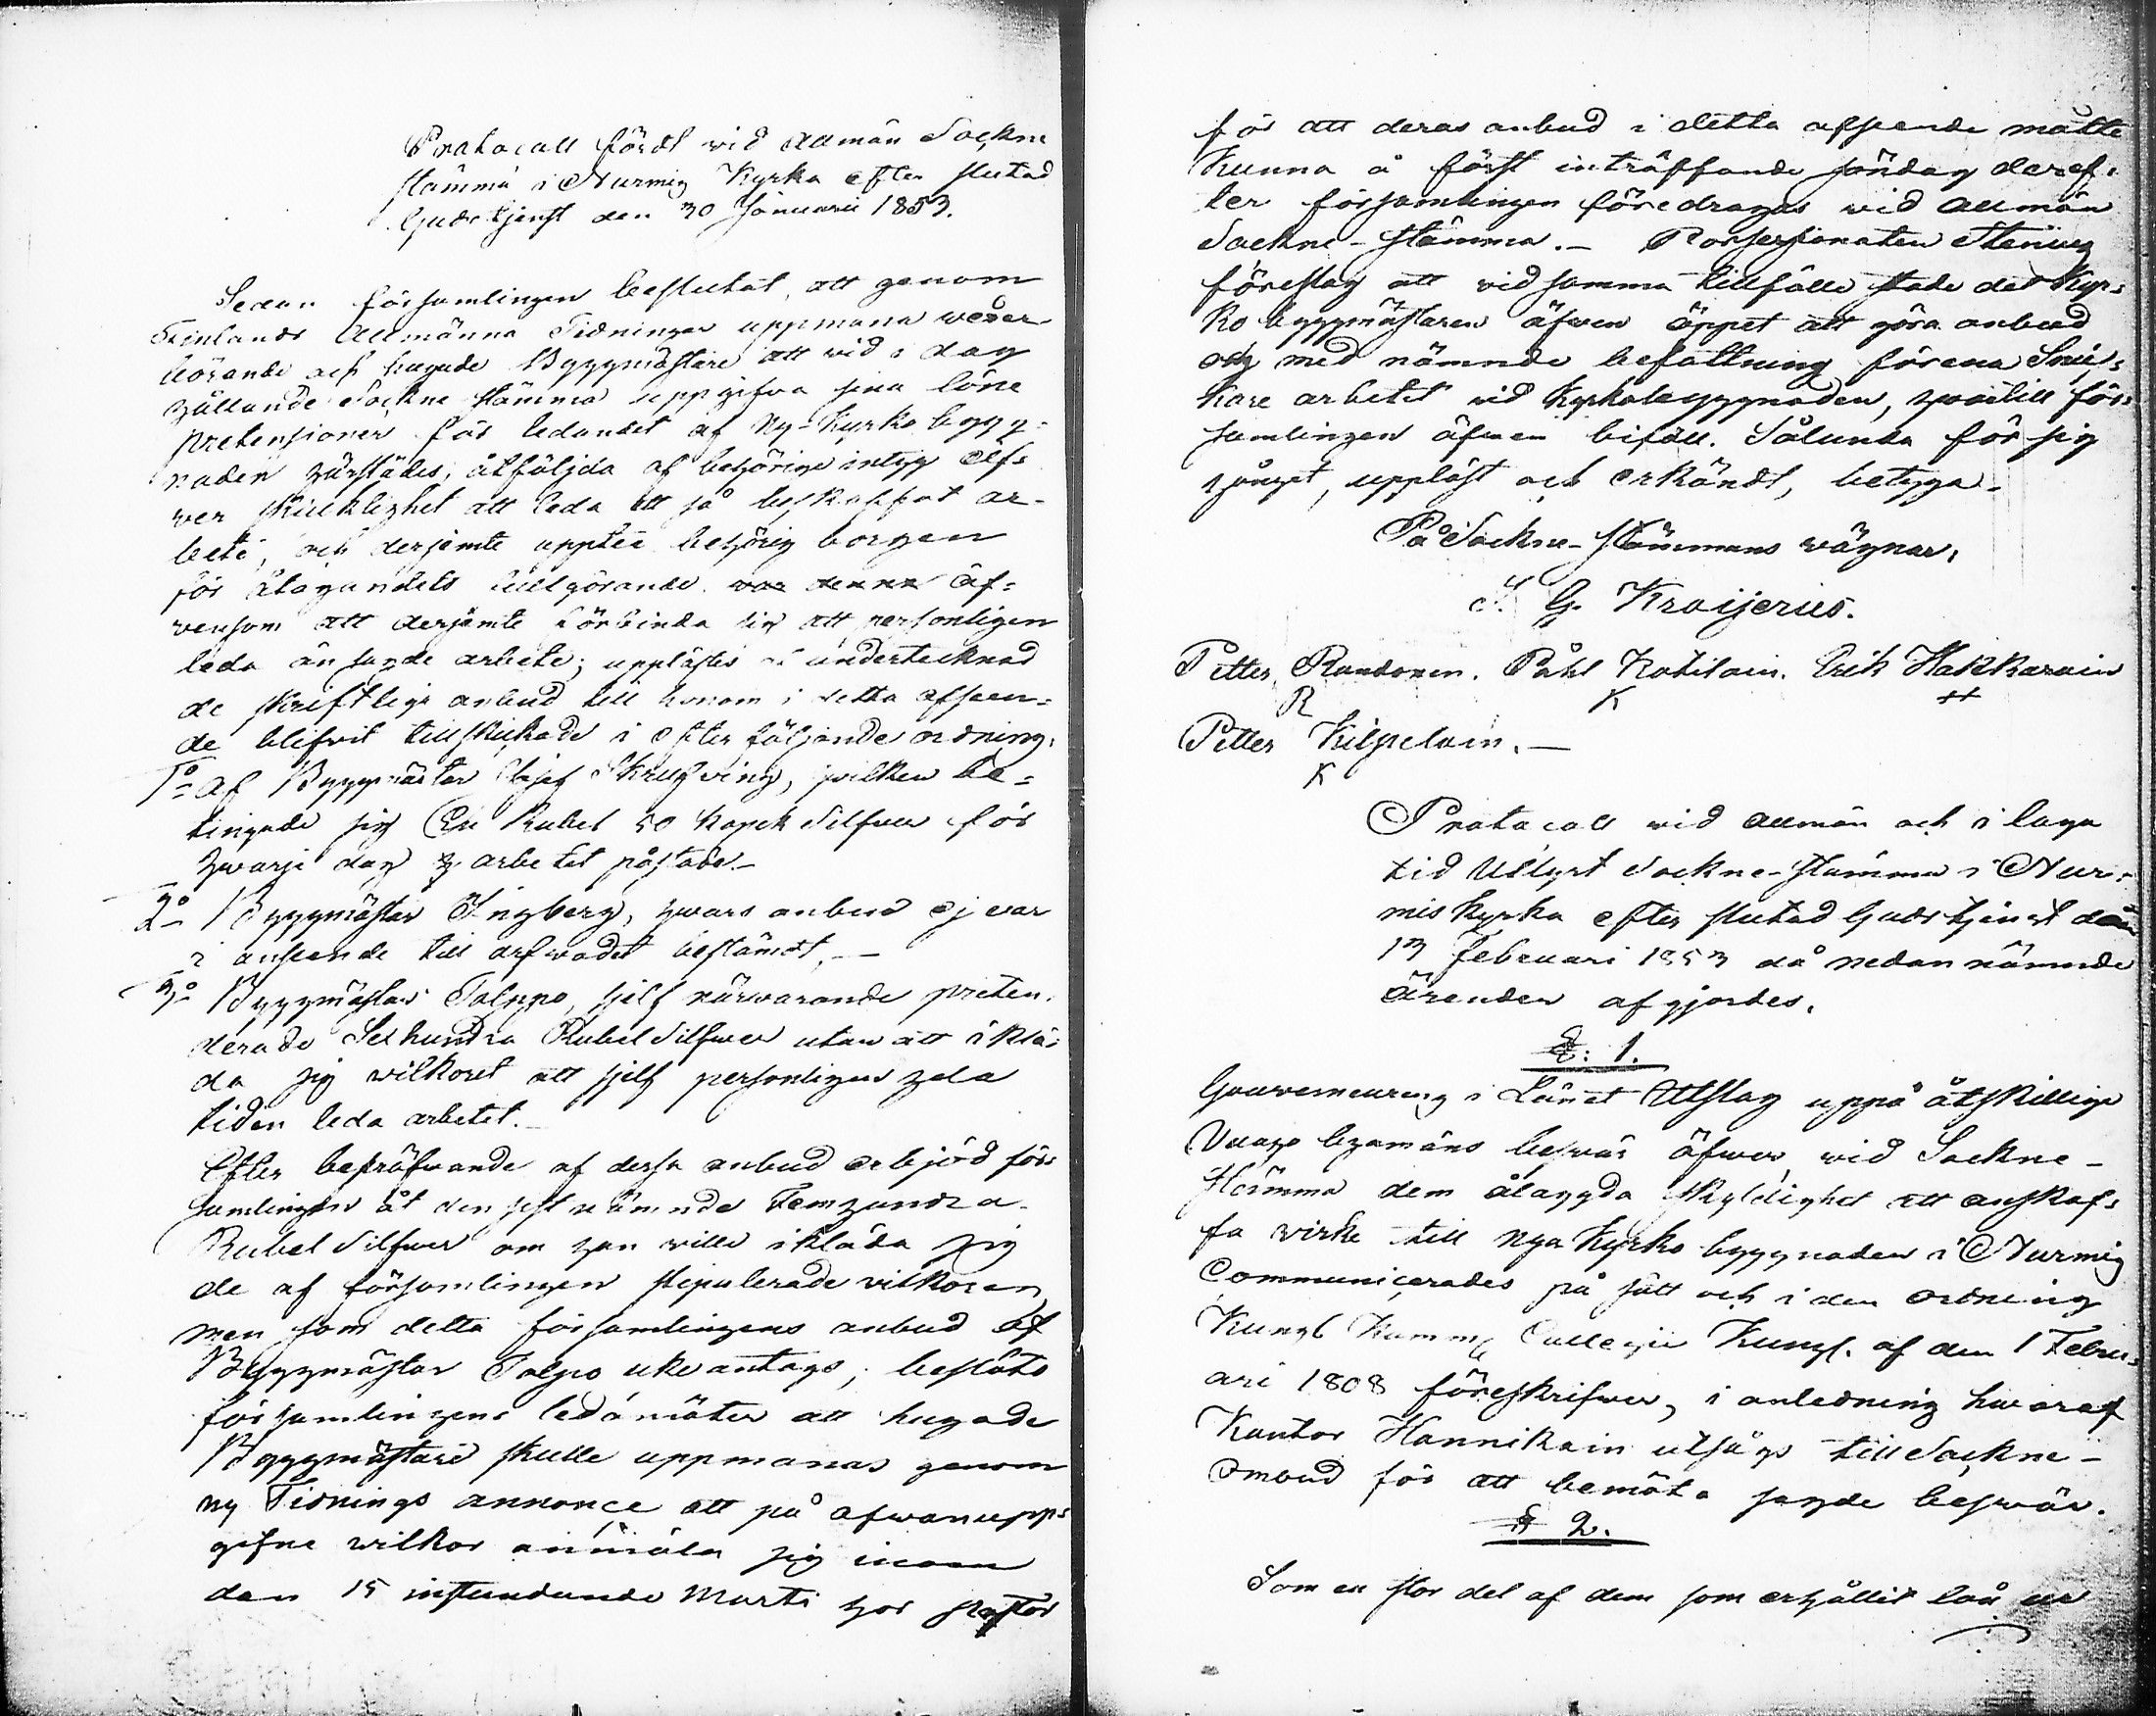 Protocoll fördt vid allmän Sockne
stämma i Nurmis Kyrka efter slutad
Gudstjenst den 30 Januarii 1853.
Sedan församlingen beslutat, att genom
Finlands Allmänna Tidningar uppmana veder-
börande och hugade Byggmästare att vid i dag
hållande Sockne stämma uppgifva sina löne
pretensioner för ledandet af Ny-Kyrko bygg-
naden härstädes, åtföljda af behörige intyg öf-
ver skicklighet att leda ett så beskaffat ar-
bete, och derjemte uppte behörig borgen
för åtagandets fullgörande äf-
vensom att derjemte förbinda sig att personligen
leda än sagde arbete; upplästes undertecknad
de skriftliga anbud till honom i detta afseen-
de blifvit tillskickade i efter följande ordning.
1o af Byggmästar Skrufving, hvilken be-
tingade sig En Rubel 50 kopek Silfver för
hvarje dag arbetet påstode.
2o Byggmästar Ingberg, hvars anbud ej var
i anseende till arfvodet bestämdt. —
3o Byggmästar Tolppo, sjelf närvarande preten-
derade Sexhundra Rubel Silfver utan att iklä-
da sig vilkoret att sjelf personligen hela
tiden leda arbetet.
Efter bepröfvande af dessa anbud erbjöd för-
samlingen åt den sist nämnde Femhundra
Rubel Silfver om han ville ikläda sig
de af församlingen stipulerade vilkoren,
men som detta församlingens anbud af
Byggmästar Tolpo icke antogs, beslöto
församlingens ledamöter att hugade
Byggmästare skulle uppmanas genom
ny Tidnings annonce att på ofvanupp-
gifne vilkor anmäla sig inom
den 15 instundande Marti hos pastor
för att deras anbud i detta afseende måtte
kunna å först inträffande söndag deref-
ter församlingen föredragas vid allmän
Sockne-stämma. — Possessionaten Stenius
föreslog att vid samma tillfälle stode det Kyr-
ko byggmästaren äfven öppet att göra anbud
och med nämnde befattning förena Snic-
kare arbetet vid Kyrkobyggnaden, hvartill för-
samlingen äfven biföll. Sålunda för sig
gånget, uppläst och erkändt, betyga.
På Sockne-stämmans vägnar.
G. Kroijerus.
Petter Randonen. Påhl Kotilain. Erik Hakkarain
R K ++
Petter Kilpelain. —
K
Protocoll vid allmän och i laga
tid Utlyst Sockne-stämma i Nur-
mis Kyrka efter slutad Gudstjenst den
13 Februari 1853 då nedan nämnde
ärenden afgjordes.
§. 1.
Gouverneurens i Länet Utslag uppå åtskillige
byamäns besvär öfver, vid Sockne-
stämma dem ålagda skyldighet att anskaf-
fa virke till nya Kyrko byggnaden i Nurmis
Communicerades på sätt och i den ordning
Kungl Kamm. Collegii Kungl. af den 1 Febru-
ari 1808 föreskrifver, i anledning hvaraf
Kantor Hannikain utsågs till Sockne-
ombud för att bemöta sagde besvär.
§ 2.
Som en stor del af dem som erhållit lån ur